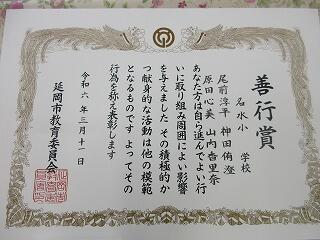 善行賞
名水小 学校
尾前淳平 神田侑澄
原田心美 山内香里奈
あなた方は自ら進んでよい行
いに取り組み周囲によい影響
を与えました その積極的か
つ献身的な活動は他の模範
となるものです よってその
行為を称え表彰します
令和六年三月十一日
延岡市教育委員会